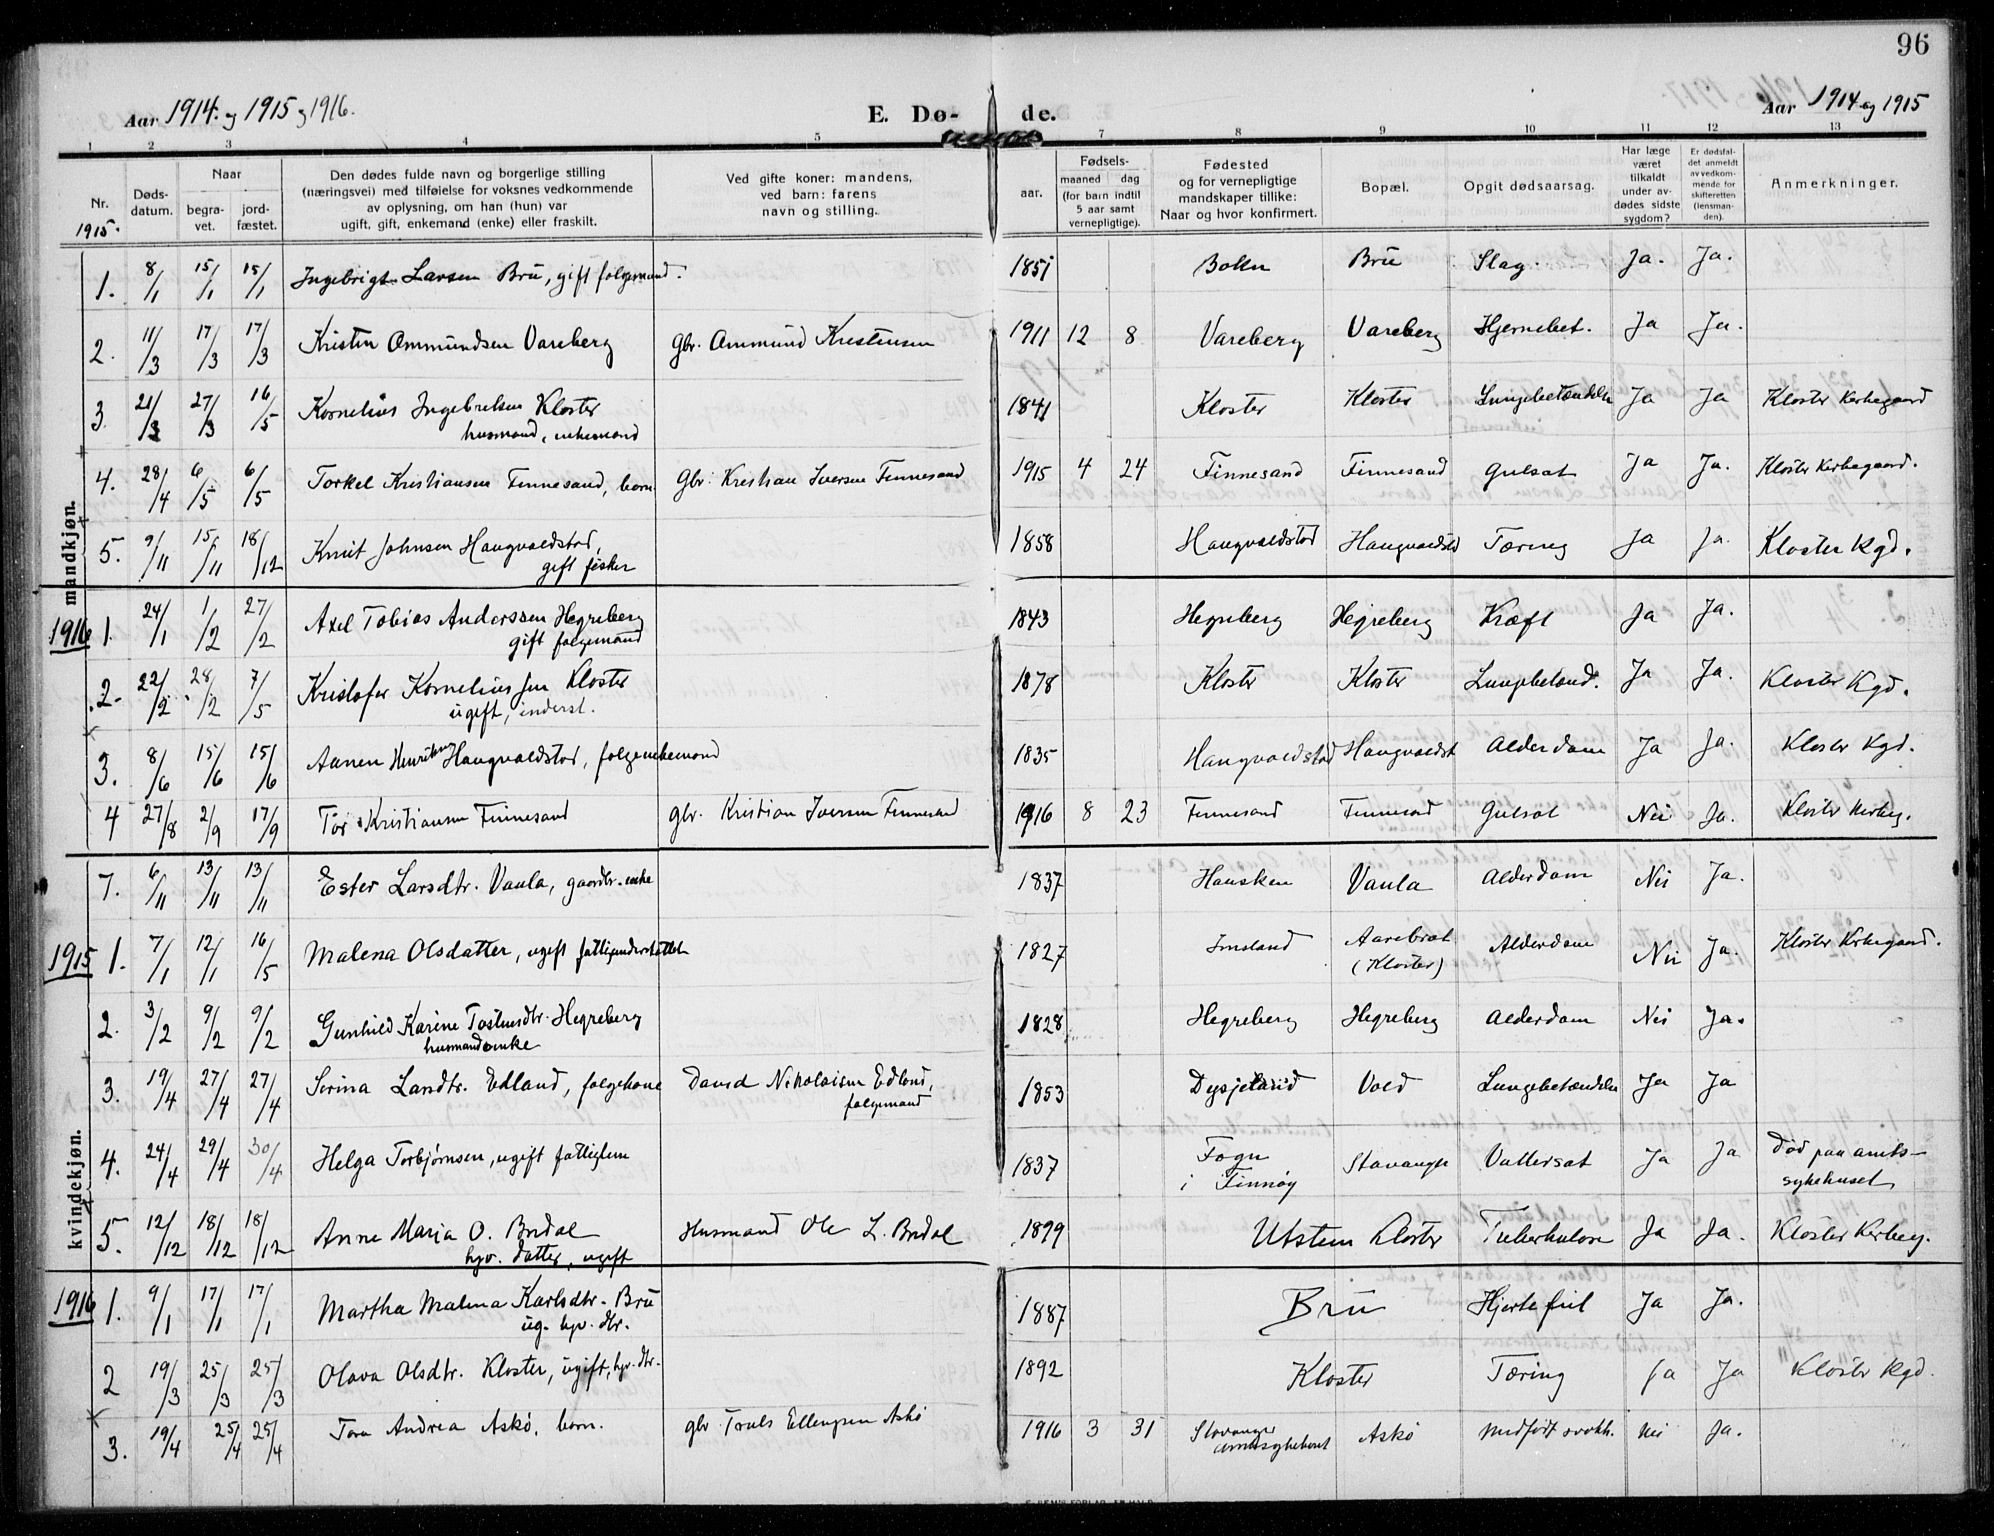 96
Aar 1914 og 1915 og 1916.
E. Dø-
de.
Aar 1914 og 1915
1 2 3 4 5 7 8 9 10 11 12 13
Nr.
1915.
Døds-
datum.
Naar
begra-
vet.
jord-
fæstet.
Den dødes fulde navn og borgerlige stilling
(næringsvei) med tilføielse for voksnes vedkommende
av oplysning, om han (hun) var
ugift, gift, enkemand (enke) eller fraskilt.
Ved gifte koner: mandens,
ved barn: farens
navn og stilling.
aar.
Fødsels-
maaned dag
(for barn indtil
5 aar samt
vernepligtige).
Fødested
og for vernepligtige
mandskaper tillike:
Naar og hvor konfirmert.
Bopæl.
Opgit dødsaarsag.
Har læge
været
tilkaldt
under av-
dødes sidste
sygdom?
Er dødsfal-
det anmeldt
av vedkom-
mende for
skifteretten
(lensman-
den).
Anmerkninger.
mandkjøn.
1. 8/1 15/1 15/1 Ingebrigt Larsen Brü, gift folgemand. 1851 Bokn Brü Slag. Ja. Ja.
2. 11/3 17/3 17/3 Kristen Ommundsen Vareberg Gbr. Ommund Kristensen 1911 12 8 Vareberg Vareberg Hjernebet. Ja Ja.
3. 21/3 27/3 16/5 Kornelius Ingebretsen Kloster 1841 Kloster Kloster Lungebetændelse Ja Ja Kloster Kirkegaard
husmand, enkemand
4. 28/4 6/5 6/5 Torkel Kristiansen Finnesand, barn Gbr: Kristian Iversen Finnesand 1915 4 24 Finnesand Finnesand Gulsot Ja Ja. Kloster Kirkegaard.
5. 9/11 15/11 18/12 Knut Johnsen Haugvaldstad, 1858 Haugvaldstad Haugvaldstd Tæring Ja Ja. Kloster Kgd.
gift fisker
1916 1. 24/1 1/2 27/2 Axel Tobias Anderssen Hegreberg 1843 Hegreberg Hegreberg Kræft Ja Ja.
gift folgemand
2. 22/2 28/2 7/5 Kristofer Korneliussen Kloster 1878 Kloster Kloster Lungebetænd. Ja Ja. Kloster Kgd.
ugift, inderst.
3. 8/6 15/6 15/6 Aanen Henriksen Haugvaldstad, folgeenkemand 1835 Haugvaldstad Haugvaldst Alderdom Ja Ja. Kloster Kgd.
4 27/8 2/9 17/9 Tor Kristiansen Finnesand gbr. Kristian Iversen Finnesand 1916 8 23 Finnesand Finnesand Gulsot Nei Ja. Kloster Kirkeg.
7. 6/11 13/11 13/11 Ester Larsdtr. Vaula, gaardbr. enke 1837 Hausken Vaula Alderdom Nei Ja.
1915 1. 7/1 12/1 16/5 Malena Olsdatter, ugift fattigunderstøttet 1827 Imsland Aarebrot Alderdom Nei Ja. Kloster Kirkegaard.
(Kloster)
2. 3/2 9/2 9/2 Gunhild Karine Tostensdtr. Hegreberg 1828 Hegreberg Hegreberg Alderdom Nei Ja.
husmandsenke
kvindekjøn.
3. 19/4 27/4 27/4 Serina Larsdtr. Edland, folgekone David Nikolaisen Edland, 1853 Dysjeland Vold Lungebetændelse Ja Ja
folgemand
4. 24/4 29/4 30/4 Helga Torbjørnsen, ugift fattiglem 1837 Fogn Stavanger Vattersot Ja Ja Død paa amts-
i Finnøy sykehuset
5. 12/12 18/12 18/12 Anne Marja O. Bridal Husmand Ole L. Bridal 1899 Utstein Kloster Tuberkulose Ja Ja. Kloster Kirkeg.
hjv. datter, ugift
1916 1. 9/1 17/1 17/1 Martha Malena Karlsdtr. Brü 1887 Brü Hjertefeil Ja Ja.
ug. hjv. dtr.
2 19/3 25/3 25/3 Olava Olsdtr. Kloster, ugift, hjv. dtr. 1892 Kloster Tæring Ja Ja Kloster Kgd.
3. 19/4 25/4 25/4 Tora Andrea Askø, barn. gbr Truls Ellingsen Askø 1916 3 31 Stavanger Askø Medfødt svakh. Nei Ja.
amtssykehuset